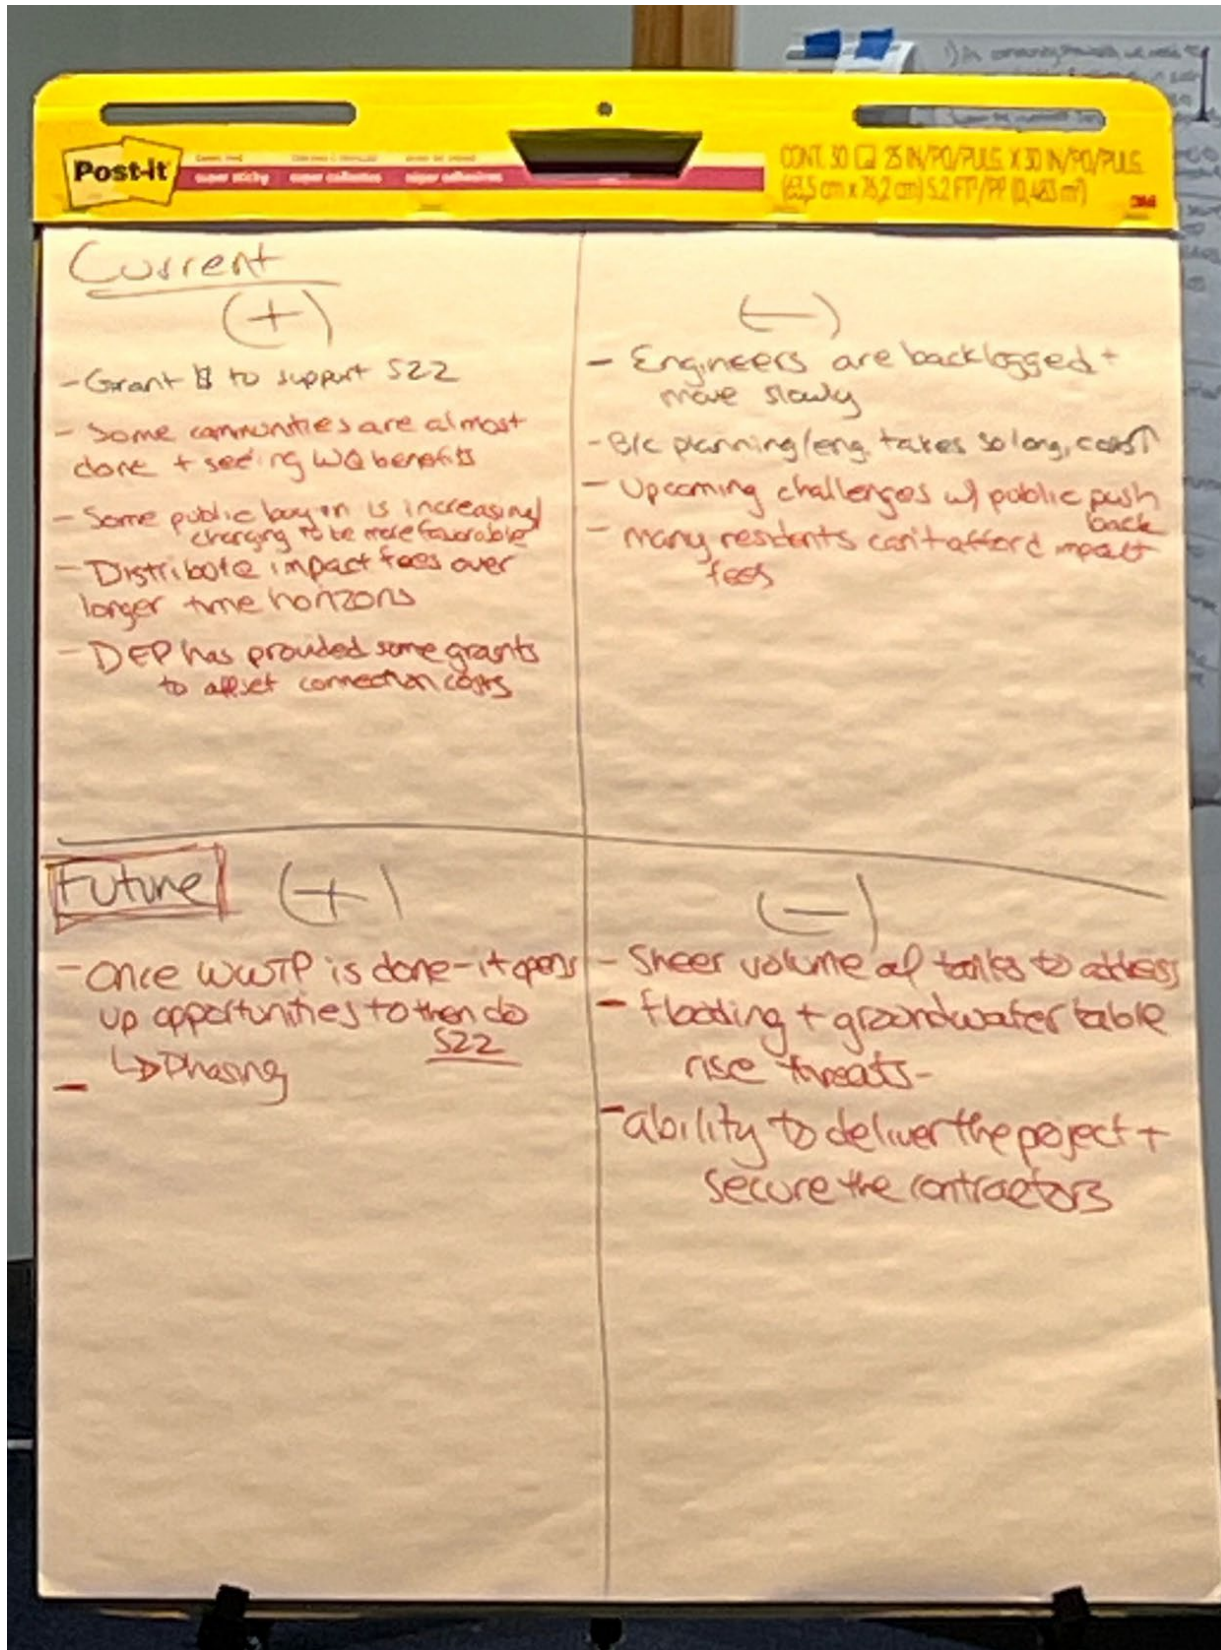 Post-it
super sticky super collantes super adhesivas
CONT. 30 25 IN/PO/PULG. X 30 IN/PO/PULG.
(63,5 cm x 76,2 cm) 5.2 FT²/PI² (0,483 m²)
3M
Current
(+)
- Grant $ to support S22
- Some communities are almost
done + seeing WQ benefits
- Some public buy in is increasing/
changing to be more favorable
- Distribute impact fees over
longer time horizons
- DEP has provided some grants
to offset connection costs
(-)
- Engineers are backlogged +
move slowly
- B/c planning/eng. takes so long, cost↑
- Upcoming challenges w/ public push
back
- Many residents can't afford impact
fees
Future (+)
- Once WWTP is done - it opens
up opportunities to then do
S22
↳ Phasing
-
(-)
- Sheer volume of tanks to address
- Flooding + groundwater table
rise threats -
- ability to deliver the project +
secure the contractors